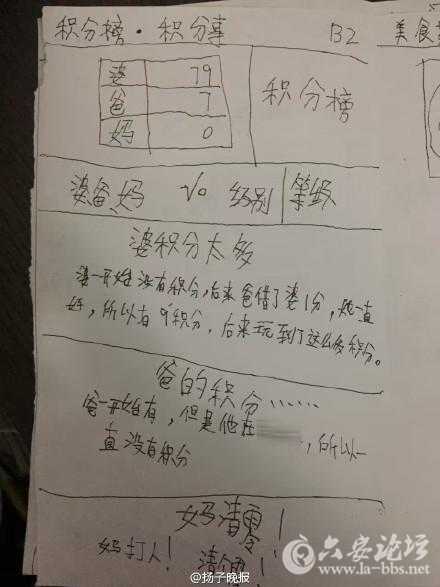 积分榜·积分事 B2 美食
婆 79
爸 7
妈 0
积分榜
婆爸妈 V0 级别 等级
婆积分太多
婆一开始没有积分,后来爸借了婆1分,她一直
好,所以有9积分,后来玩到了这么多积分。
爸的积分……
爸一开始有,但是他在,所以一
直没有积分
妈清零!
妈打人!清
@扬子晚报
六安论坛
www.la-bbs.net